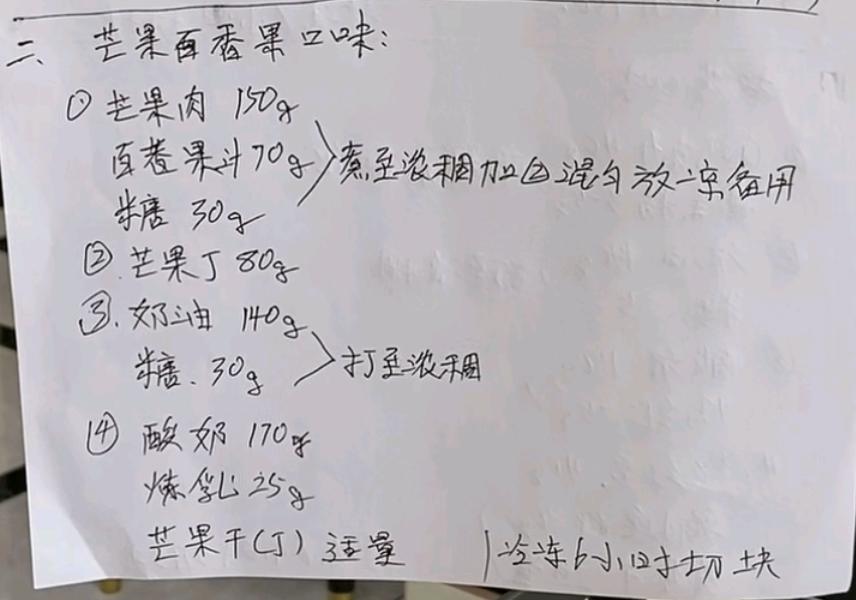 二、芒果百香果口味:
① 芒果肉 150g
百香果汁70g 煮至浓稠加②混匀放凉备用
糖 30g
② 芒果丁 80g
③. 奶油 140g
糖. 30g 打至浓稠
④ 酸奶 170g
炼乳 25g
芒果干(丁) 适量 冷冻6小时切块